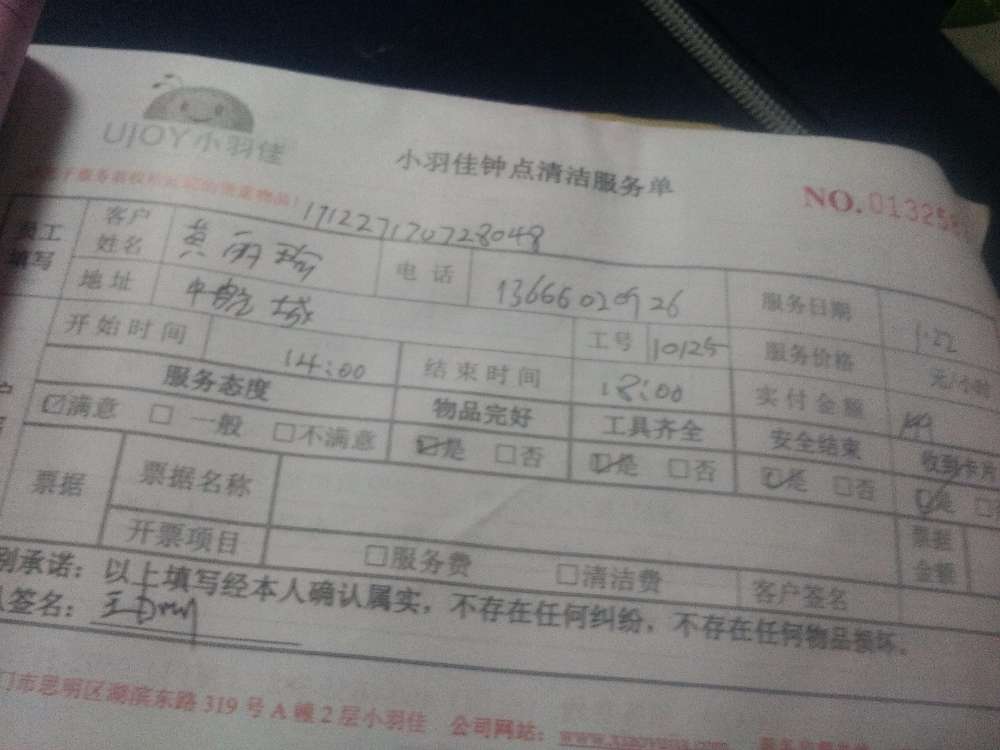 UJOY小羽佳
小羽佳钟点清洁服务单
NO.01325
171227170728048
客户姓名 黄丽 电话 服务日期 1.22
地址 城 工号 10125 服务价格 元/小时
开始时间 14:00 结束时间 18:00 实付金额
服务态度 物品完好 工具齐全 安全结束 收到卡
☑满意 □一般 □不满意 ☑是 □否 ☑是 □否 ☑是 □否 ☑是
票据 票据名称 票据金额
开票项目 □服务费 □清洁费 客户签名
别承诺：以上填写经本人确认属实，不存在任何纠纷，不存在任何物品损坏。
签名：
门市思明区湖滨东路 319 号 A 幢 2 层小羽佳 公司网站：